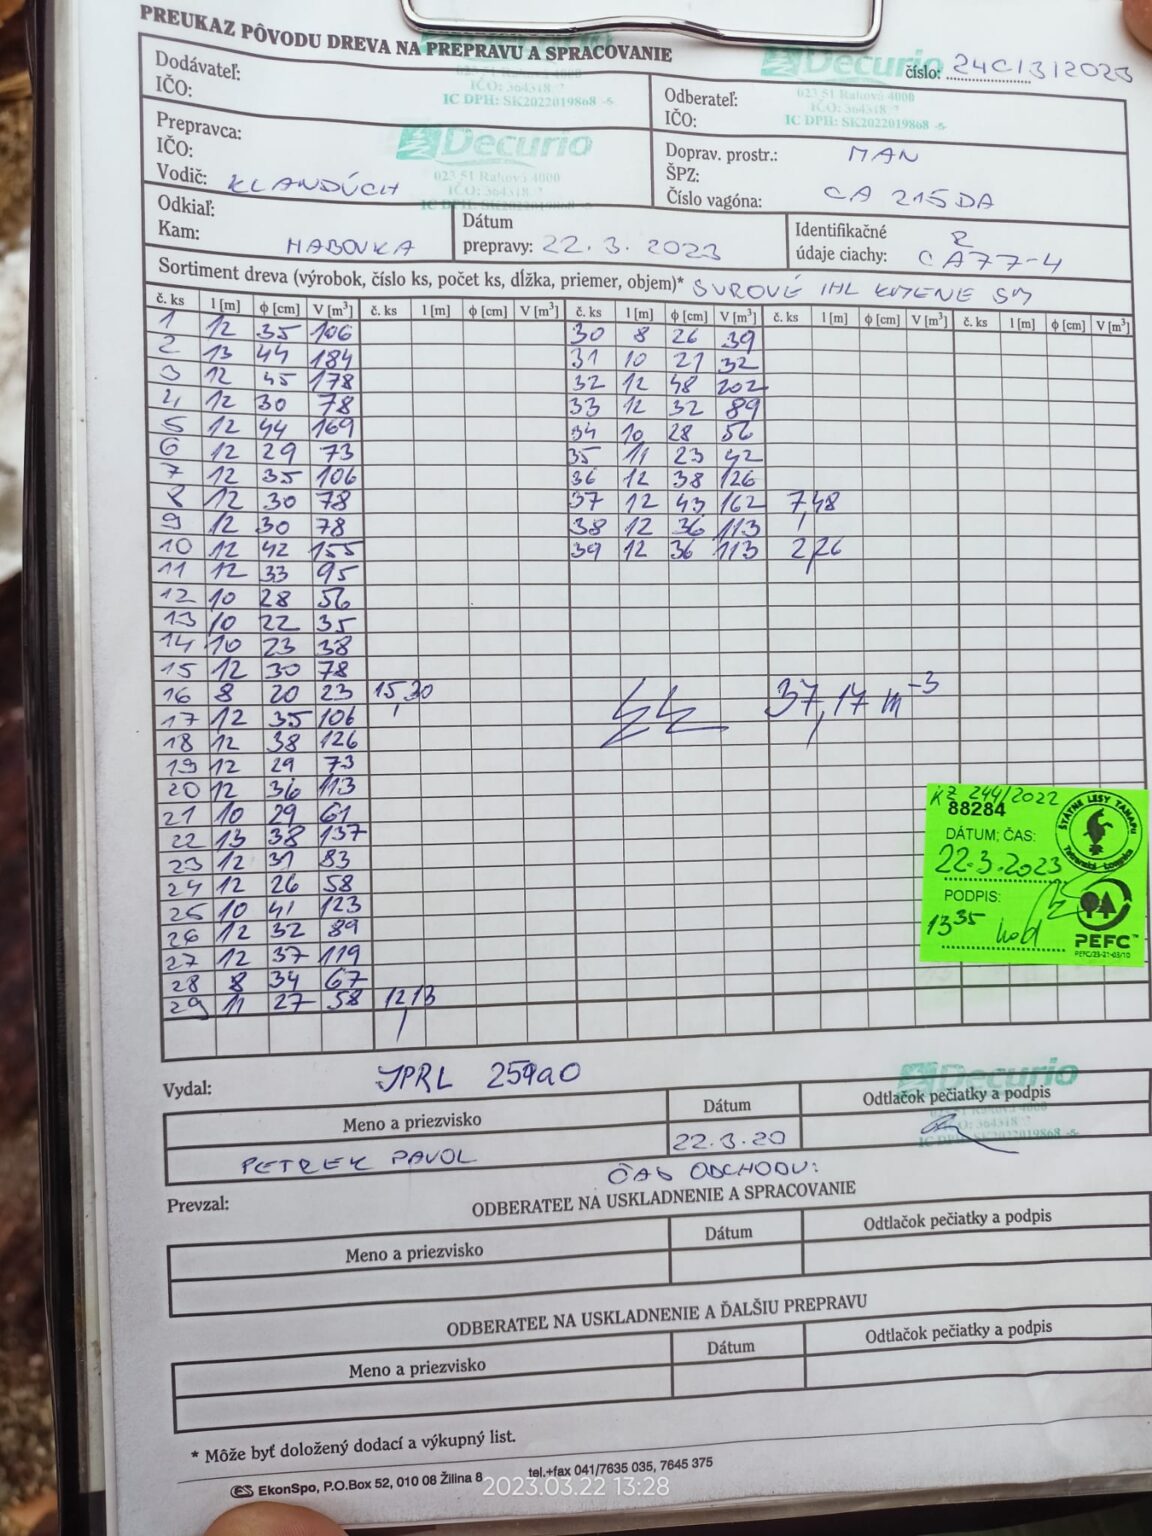 PREUKAZ PÔVODU DREVA NA PREPRAVU A SPRACOVANIE
Decurio
číslo: 24C/3/2023
Dodávateľ:
IČO:
IC DPH: SK2022019868 -5-
Odberateľ:
IČO:
023 51 Raková 4000
IC DPH: SK2022019868 -5-
Prepravca:
IČO:
Vodič: KLANDÚCH
Decurio
023 51 Raková 4000
Doprav. prostr.: MAN
ŠPZ:
Číslo vagóna: CA 215DA
Odkiaľ:
Kam: HABOVKA
Dátum
prepravy: 22.3.2023
Identifikačné
údaje ciachy: R CA77-4
Sortiment dreva (výrobok, číslo ks, počet ks, dĺžka, priemer, objem)* SUROVÉ IHL KMENE SM
č. ks l [m] ϕ [cm] V [m³] č. ks l [m] ϕ [cm] V [m³] č. ks l [m] ϕ [cm] V [m³] č. ks l [m] ϕ [cm] V [m³] č. ks l [m] ϕ [cm] V [m³]
1 12 35 106 30 8 26 39
2 13 44 184 31 10 21 32
3 12 45 178 32 12 48 202
4 12 30 78 33 12 32 89
5 12 44 169 34 10 28 56
6 12 29 73 35 11 23 42
7 12 35 106 36 12 38 126
8 12 30 78 37 12 43 162 7,48
9 12 30 78 38 12 36 113
10 12 42 155 39 12 36 113 2,26
11 12 33 95
12 10 28 56
13 10 22 35
14 10 23 38
15 12 30 78
16 8 20 23 15,30 37,17 m-3
17 12 35 106
18 12 38 126
19 12 29 73
20 12 36 113
21 10 29 61
22 13 38 137
23 12 31 83
24 12 26 58
25 10 41 123
26 12 32 89
27 12 37 119
28 8 34 67
29 11 27 58 12,13
244/2022
88284
DÁTUM; ČAS:
22.3.2023
PODPIS:
13 35
ŠTÁTNE LESY TANAPu
Tatranská Lomnica
PEFC™
PEFC/23-21-03/10
Vydal: JPRL 259a0
Decurio
Meno a priezvisko Dátum Odtlačok pečiatky a podpis
PETREK PAVOL 22.3.20
IC DPH: SK2022019868 -5-
ČAS ODCHODU:
Prevzal: ODBERATEĽ NA USKLADNENIE A SPRACOVANIE
Meno a priezvisko Dátum Odtlačok pečiatky a podpis
ODBERATEĽ NA USKLADNENIE A ĎALŠIU PREPRAVU
Meno a priezvisko Dátum Odtlačok pečiatky a podpis
* Môže byť doložený dodací a výkupný list.
ES EkonSpo, P.O.Box 52, 010 08 Žilina 8 tel.+fax 041/7635 035, 7645 375
2023.03.22 13:28